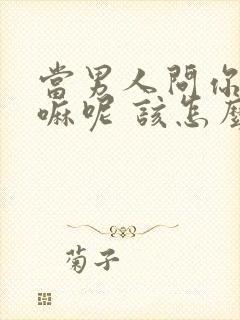 當男人問你
嘛呢 該怎麼
菊子